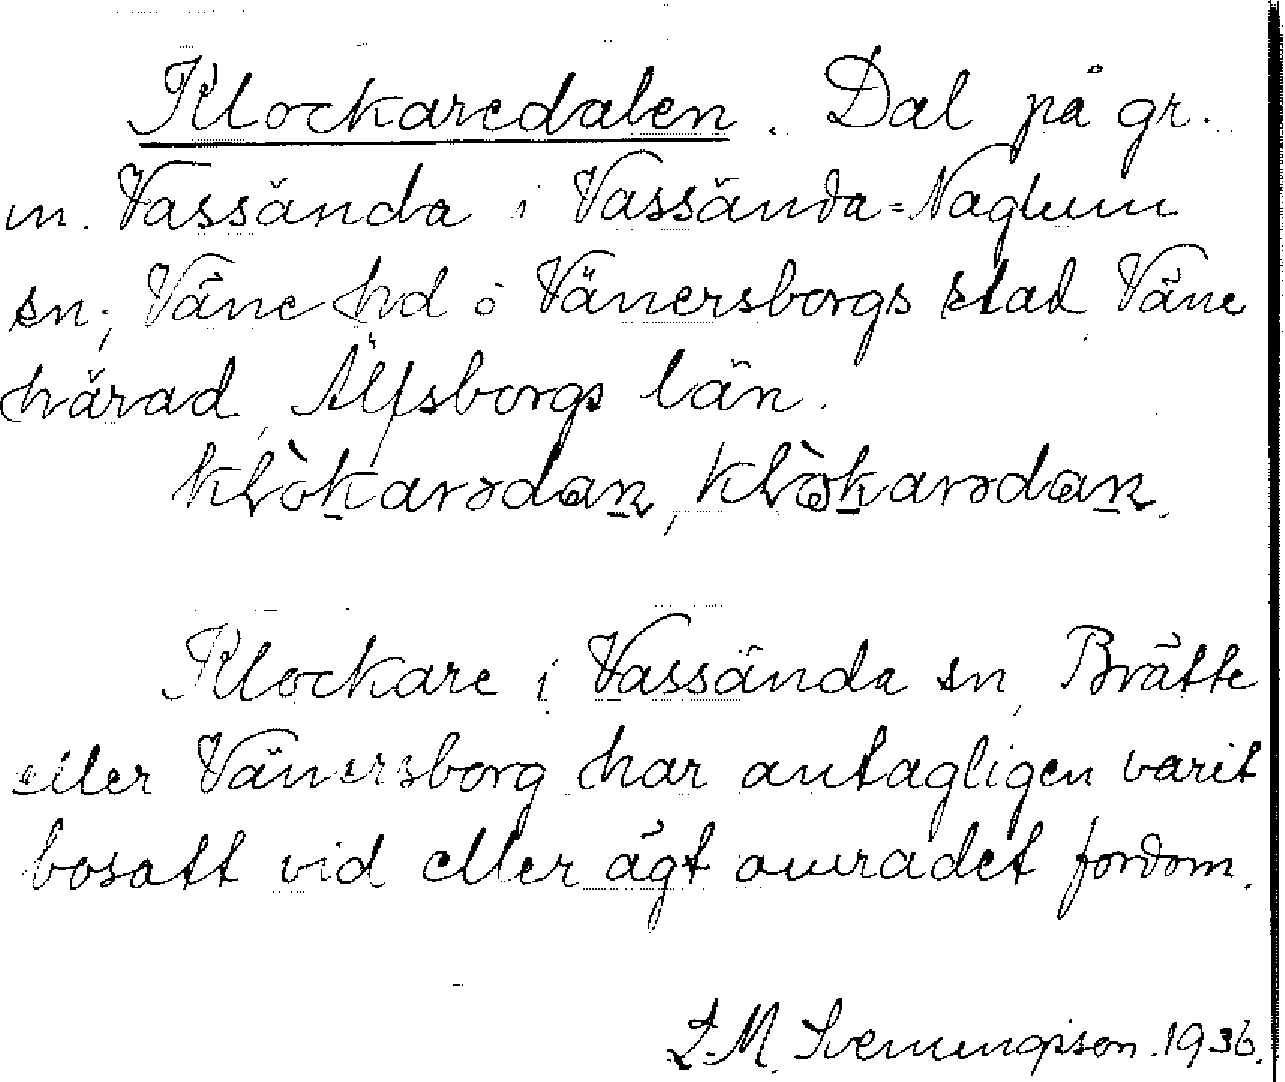 Klockaredalen. Dal på gr.
m. Vassända i Vassända-Naglum
sn, Väne hd o Vänersborgs stad Väne
härad, Älfsborgs län.
klòkarədaɴ, klòkarədaɴ.
Klockare i Vassända sn, Brätte
eller Vänersborg har antagligen varit
bosatt vid eller ägt området fordom.
L.M. Svenungsson. 1936.